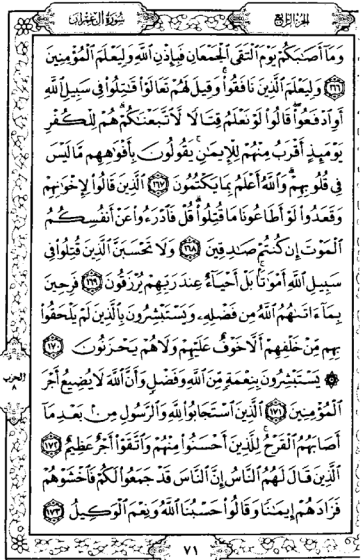 الجزء الرابع
سورة آل عمران
وَمَآ أَصَٰبَكُمْ يَوْمَ ٱلْتَقَى ٱلْجَمْعَانِ فَبِإِذْنِ ٱللَّهِ وَلِيَعْلَمَ ٱلْمُؤْمِنِينَ
١٦٦ وَلِيَعْلَمَ ٱلَّذِينَ نَافَقُوا۟ وَقِيلَ لَهُمْ تَعَالَوْا۟ قَٰتِلُوا۟ فِى سَبِيلِ ٱللَّهِ
أَوِ ٱدْفَعُوا۟ قَالُوا۟ لَوْ نَعْلَمُ قِتَالًا لَّٱتَّبَعْنَٰكُمْ هُمْ لِلْكُفْرِ
يَوْمَئِذٍ أَقْرَبُ مِنْهُمْ لِلْإِيمَٰنِ يَقُولُونَ بِأَفْوَٰهِهِم مَّا لَيْسَ
فِى قُلُوبِهِمْ وَٱللَّهُ أَعْلَمُ بِمَا يَكْتُمُونَ ١٦٧ ٱلَّذِينَ قَالُوا۟ لِإِخْوَٰنِهِمْ
وَقَعَدُوا۟ لَوْ أَطَاعُونَا مَا قُتِلُوا۟ قُلْ فَٱدْرَءُوا۟ عَنْ أَنفُسِكُمُ
ٱلْمَوْتَ إِن كُنتُمْ صَٰدِقِينَ ١٦٨ وَلَا تَحْسَبَنَّ ٱلَّذِينَ قُتِلُوا۟ فِى
سَبِيلِ ٱللَّهِ أَمْوَٰتًۢا بَلْ أَحْيَآءٌ عِندَ رَبِّهِمْ يُرْزَقُونَ ١٦٩ فَرِحِينَ
بِمَآ ءَاتَىٰهُمُ ٱللَّهُ مِن فَضْلِهِۦ وَيَسْتَبْشِرُونَ بِٱلَّذِينَ لَمْ يَلْحَقُوا۟
بِهِم مِّنْ خَلْفِهِمْ أَلَّا خَوْفٌ عَلَيْهِمْ وَلَا هُمْ يَحْزَنُونَ ١٧٠
۞ يَسْتَبْشِرُونَ بِنِعْمَةٍ مِّنَ ٱللَّهِ وَفَضْلٍ وَأَنَّ ٱللَّهَ لَا يُضِيعُ أَجْرَ
ٱلْمُؤْمِنِينَ ١٧١ ٱلَّذِينَ ٱسْتَجَابُوا۟ لِلَّهِ وَٱلرَّسُولِ مِنۢ بَعْدِ مَآ
أَصَابَهُمُ ٱلْقَرْحُ لِلَّذِينَ أَحْسَنُوا۟ مِنْهُمْ وَٱتَّقَوْا۟ أَجْرٌ عَظِيمٌ ١٧٢
ٱلَّذِينَ قَالَ لَهُمُ ٱلنَّاسُ إِنَّ ٱلنَّاسَ قَدْ جَمَعُوا۟ لَكُمْ فَٱخْشَوْهُمْ
فَزَادَهُمْ إِيمَٰنًا وَقَالُوا۟ حَسْبُنَا ٱللَّهُ وَنِعْمَ ٱلْوَكِيلُ ١٧٣
الحزب
٨
٧١